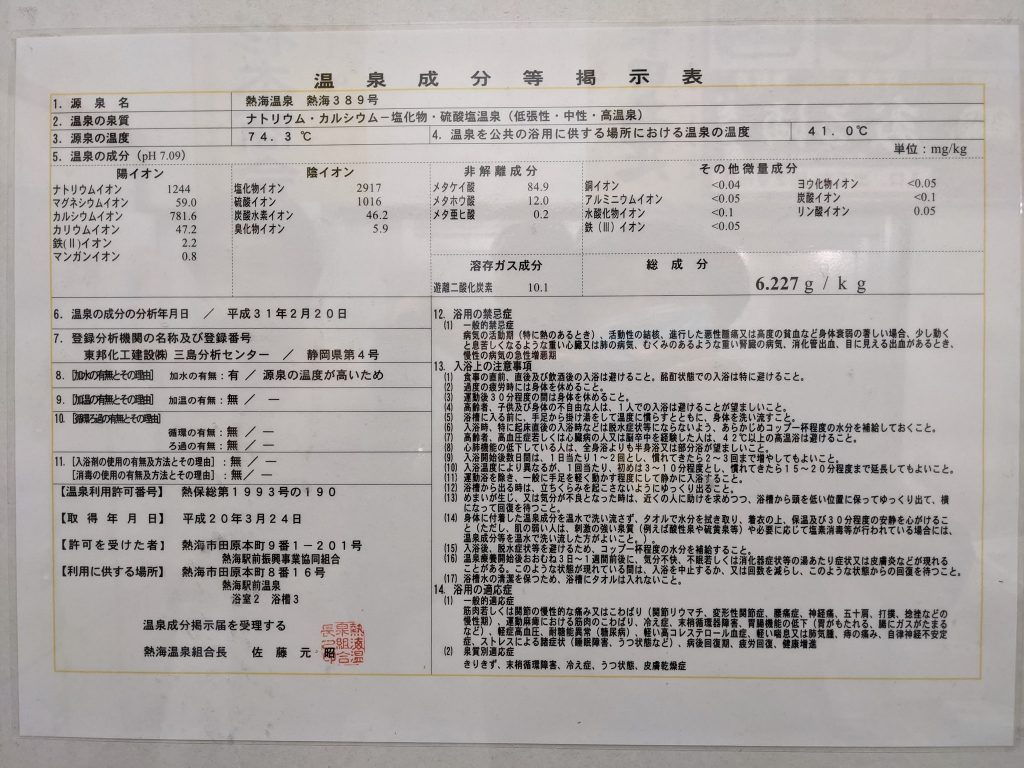 温泉成分等掲示表
1. 源泉名 熱海温泉 熱海389号
2. 温泉の泉質 ナトリウム・カルシウム－塩化物・硫酸塩温泉（低張性・中性・高温泉）
3. 源泉の温度 74.3℃ 4. 温泉を公共の浴用に供する場所における温泉の温度 41.0℃
5. 温泉の成分（pH 7.09） 単位：mg/kg
陽イオン
ナトリウムイオン 1244
マグネシウムイオン 59.0
カルシウムイオン 781.6
カリウムイオン 47.2
鉄(Ⅱ)イオン 2.2
マンガンイオン 0.8
陰イオン
塩化物イオン 2917
硫酸イオン 1016
炭酸水素イオン 46.2
臭化物イオン 5.9
非解離成分
メタケイ酸 84.9
メタホウ酸 12.0
メタ亜ヒ酸 0.2
その他微量成分
銅イオン <0.04 ヨウ化物イオン <0.05
アルミニウムイオン <0.05 炭酸イオン <0.1
水酸化物イオン <0.1 リン酸イオン 0.05
鉄(Ⅲ)イオン <0.05
溶存ガス成分
遊離二酸化炭素 10.1
総成分
6.227 g / kg
6. 温泉の成分の分析年月日 ／ 平成31年2月20日
7. 登録分析機関の名称及び登録番号
東邦化工建設㈱ 三島分析センター ／ 静岡県第4号
8. [加水の有無とその理由] 加水の有無：有 ／ 源泉の温度が高いため
9. [加温の有無とその理由] 加温の有無：無 ／ ―
10. [循環ろ過の有無とその理由]
循環の有無：無 ／ ―
ろ過の有無：無 ／ ―
11. [入浴剤の使用の有無及方法とその理由]：無 ／ ―
[消毒の使用の有無及方法とその理由]：無 ／ ―
【温泉利用許可番号】 熱保総第1993号の190
【取得年月日】 平成20年3月24日
【許可を受けた者】 熱海市田原本町9番1－201号
熱海駅前振興事業協同組合
【利用に供する場所】 熱海市田原本町8番16号
熱海駅前温泉
浴室2 浴槽3
温泉成分掲示届を受理する
熱海温泉組合長 佐藤元昭
12. 浴用の禁忌症
(1) 一般的禁忌症
病気の活動期（特に熱のあるとき）、活動性の結核、進行した悪性腫瘍又は高度の貧血など身体衰弱の著しい場合、少し動く
と息苦しくなるような重い心臓又は肺の病気、むくみのあるような重い腎臓の病気、消化管出血、目に見える出血があるとき、
慢性の病気の急性増悪期
13. 入浴上の注意事項
(1) 食事の直前、直後及び飲酒後の入浴は避けること。酩酊状態での入浴は特に避けること。
(2) 過度の疲労時には身体を休めること。
(3) 運動後30分程度の間は身体を休めること。
(4) 高齢者、子供及び身体の不自由な人は、1人での入浴は避けることが望ましいこと。
(5) 浴槽に入る前に、手足から掛け湯をして温度に慣らすとともに、身体を洗い流すこと。
(6) 入浴時、特に起床直後の入浴時などは脱水症状等にならないよう、あらかじめコップ一杯程度の水分を補給しておくこと。
(7) 高齢者、高血圧症若しくは心臓病の人又は脳卒中を経験した人は、42℃以上の高温浴は避けること。
(8) 心肺機能の低下している人は、全身浴よりも半身浴又は部分浴が望ましいこと。
(9) 入浴開始後数日間は、1日当たり1～2回とし、慣れてきたら2～3回まで増やしてもよいこと。
(10) 入浴温度により異なるが、1回当たり、初めは3～10分程度とし、慣れてきたら15～20分程度まで延長してもよいこと。
(11) 運動浴を除き、一般に手足を軽く動かす程度にして静かに入浴すること。
(12) 浴槽から出る時は、立ちくらみを起こさないようにゆっくり出ること。
(13) めまいが生じ、又は気分が不良となった時は、近くの人に助けを求めつつ、浴槽から頭を低い位置に保ってゆっくり出て、横
になって回復を待つこと。
(14) 身体に付着した温泉成分を温水で洗い流さず、タオルで水分を拭き取り、着衣の上、保温及び30分程度の安静を心がけるこ
と（ただし、肌の弱い人は、刺激の強い泉質（例えば酸性泉や硫黄泉等）や必要に応じて塩素消毒等が行われている場合には、
温泉成分等を温水で洗い流した方がよいこと。）。
(15) 入浴後、脱水症状等を避けるため、コップ一杯程度の水分を補給すること。
(16) 温泉療養開始後おおむね3日～1週間前後に、気分不快、不眠若しくは消化器症状等の湯あたり症状又は皮膚炎などが現れる
ことがある。このような状態が現れている間は、入浴を中止するか、又は回数を減らし、このような状態からの回復を待つこと。
(17) 浴槽水の清潔を保つため、浴槽にタオルは入れないこと。
14. 浴用の適応症
(1) 一般的適応症
筋肉若しくは関節の慢性的な痛み又はこわばり（関節リウマチ、変形性関節症、腰痛症、神経痛、五十肩、打撲、捻挫などの
慢性期）、運動麻痺における筋肉のこわばり、冷え症、末梢循環障害、胃腸機能の低下（胃がもたれる、腸にガスがたまる
など）、軽症高血圧、耐糖能異常（糖尿病）、軽い高コレステロール血症、軽い喘息又は肺気腫、痔の痛み、自律神経不安定
症、ストレスによる諸症状（睡眠障害、うつ状態など）、病後回復期、疲労回復、健康増進
(2) 泉質別適応症
きりきず、末梢循環障害、冷え症、うつ状態、皮膚乾燥症